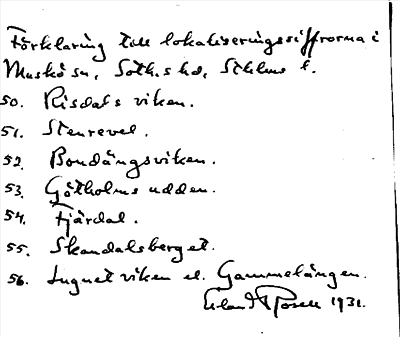 Förklaring till lokaliseringssiffrorna i
Muskö sn, Soth. hd, Sthlms l.
50. Risdals viken.
51. Stenrevel.
52. Bondängsviken.
53. Götholms udden.
54. Fjärdal.
55. Skandalsberget.
56. Lugnet viken el. Gammelängen.
Erland Rosell 1931.